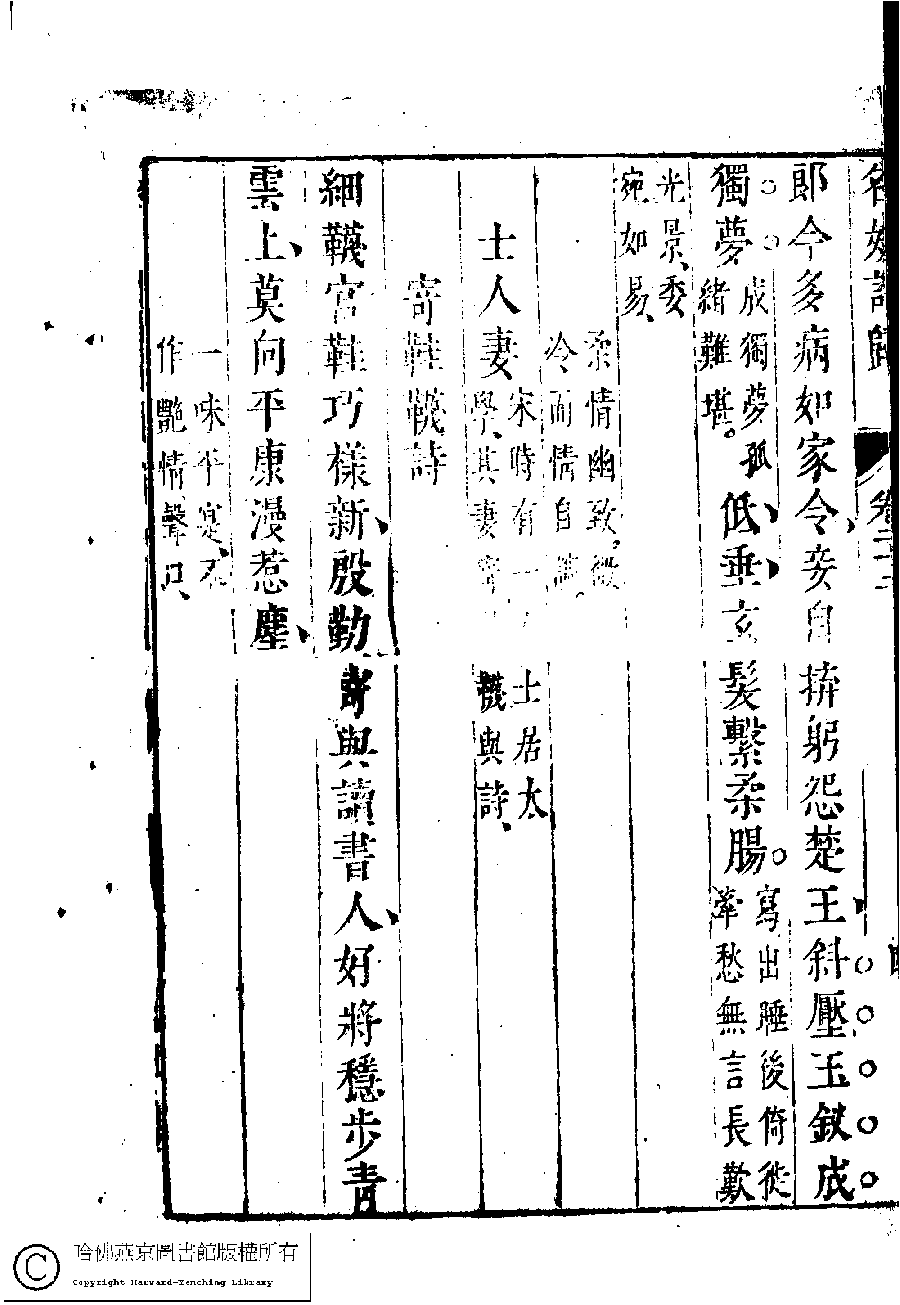 名媛詩歸 卷二十二
郎今多病如家令妾自拚躬怨楚王斜壓玉釵成
獨夢成獨夢孤緒難堪低垂玄髮繫柔腸寫出睡後倚徙牽愁無言長歎
光景委宛如易
柔情幽致微冷而情自
士人妻宋時有一士居太學其妻寄襪與詩
寄鞋襪詩
細襪宮鞋巧樣新殷勤寄與讀書人好將穩步青
雲上莫向平康漫惹塵
一味平寔不作艷情聲口
哈佛燕京圖書館版權所有
Copyright Harvard-Yenching Library